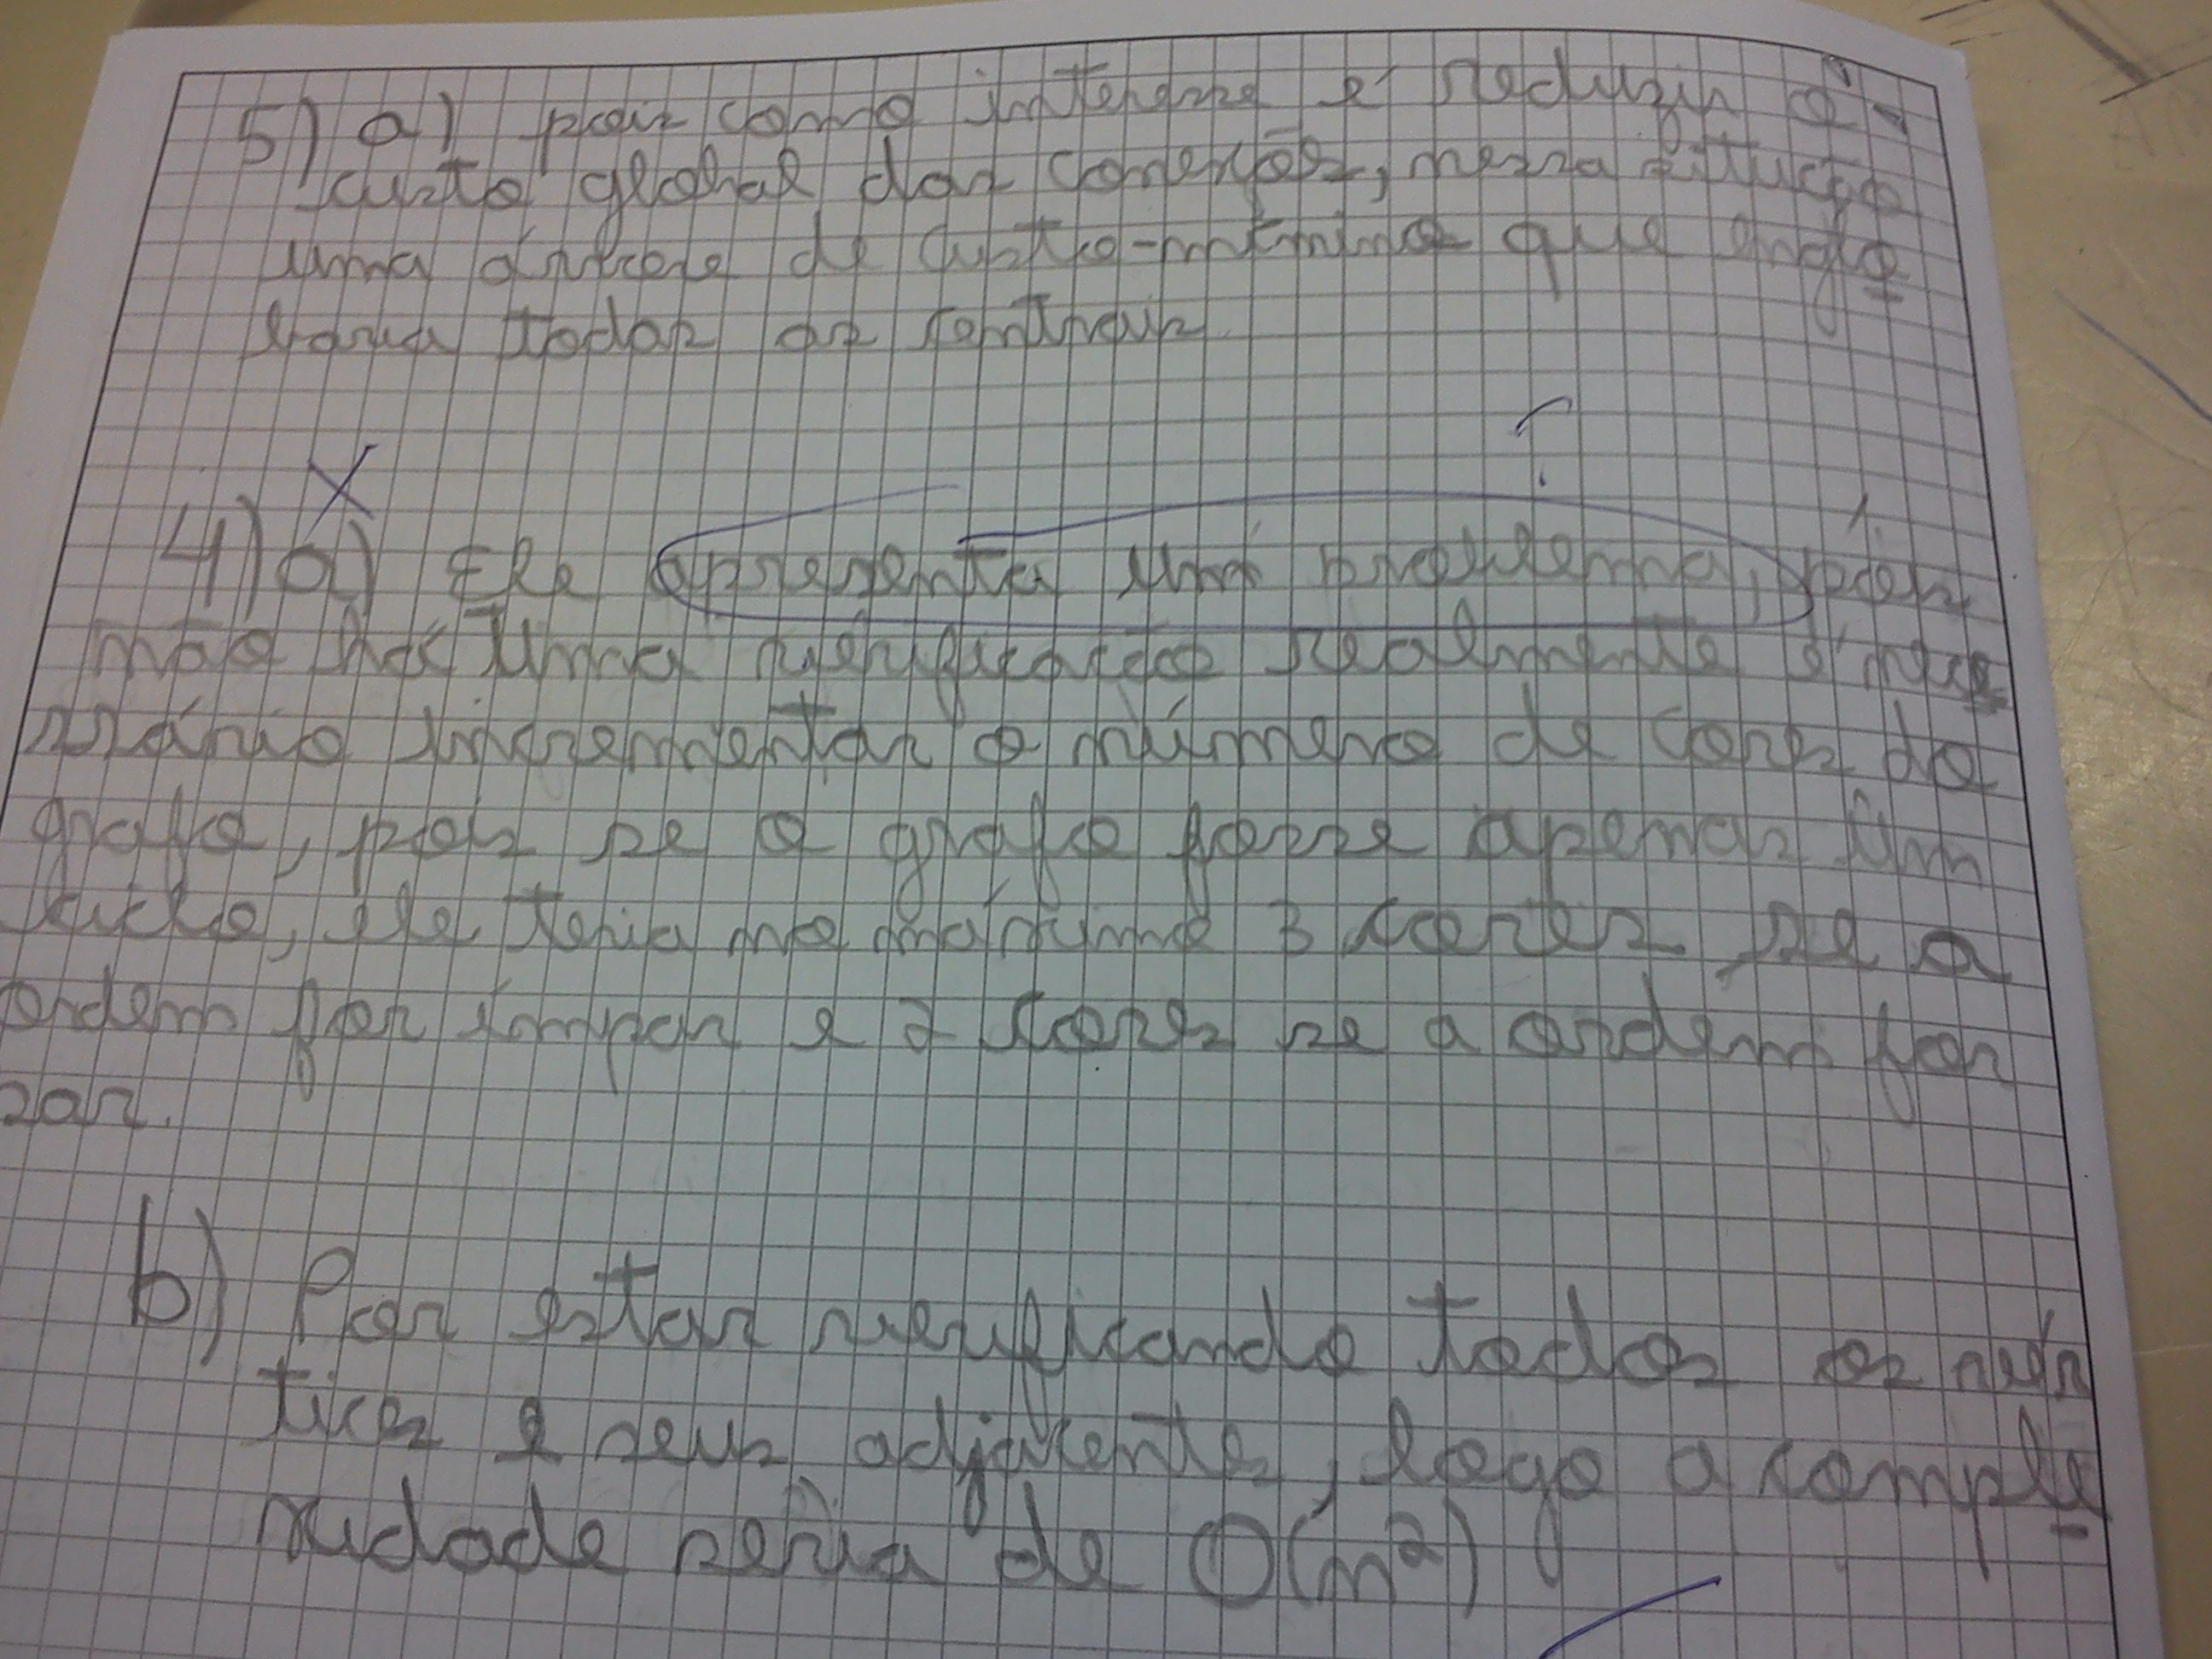 5) a) pois como interesse é reduzir o
custo global das conexões, nessa situção
uma árvore de custo-mínimo que englo
baria todas as centrais.
X
?
4) a) Ele apresenta um problema, pois
não há uma verificação realmente é nece
ssário incrementar o número de cores do
grafo, pois se o grafo fosse apenas um
ciclo, ele teria no máximo 3 cores se a
ordem for ímpar e 2 cores se a ordem for
par.
b) Por estar verificando todos os vér
tices e seus adjacentes, logo a comple
xidade seria de O(n²)